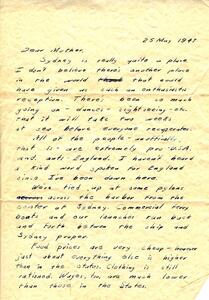 25 May 1947
Dear Mother,
Sydney is really quite a place
I don't believe there's another place
in the world that could
have given us such an enthusiastic
reception. There's been so much
going on - dances - sightseeing - etc.
that it will take two weeks
at sea before everyone recuperates.
All of the people - unofficially,
that is - are extremely pro-U.S.A.
and anti-England. I haven't heard
a kind word spoken for England
since I've been down here.
Were tied up at some pylons
across the harbor from the
center of Sydney. Commercial ferry
boats and our launches run back
and forth between the ship and
Sydney proper.
Food prices are very cheap - however
just about everything else is higher
than in the States. Clothing is still
rationed. Wages, too, are much lower
than those in the States.